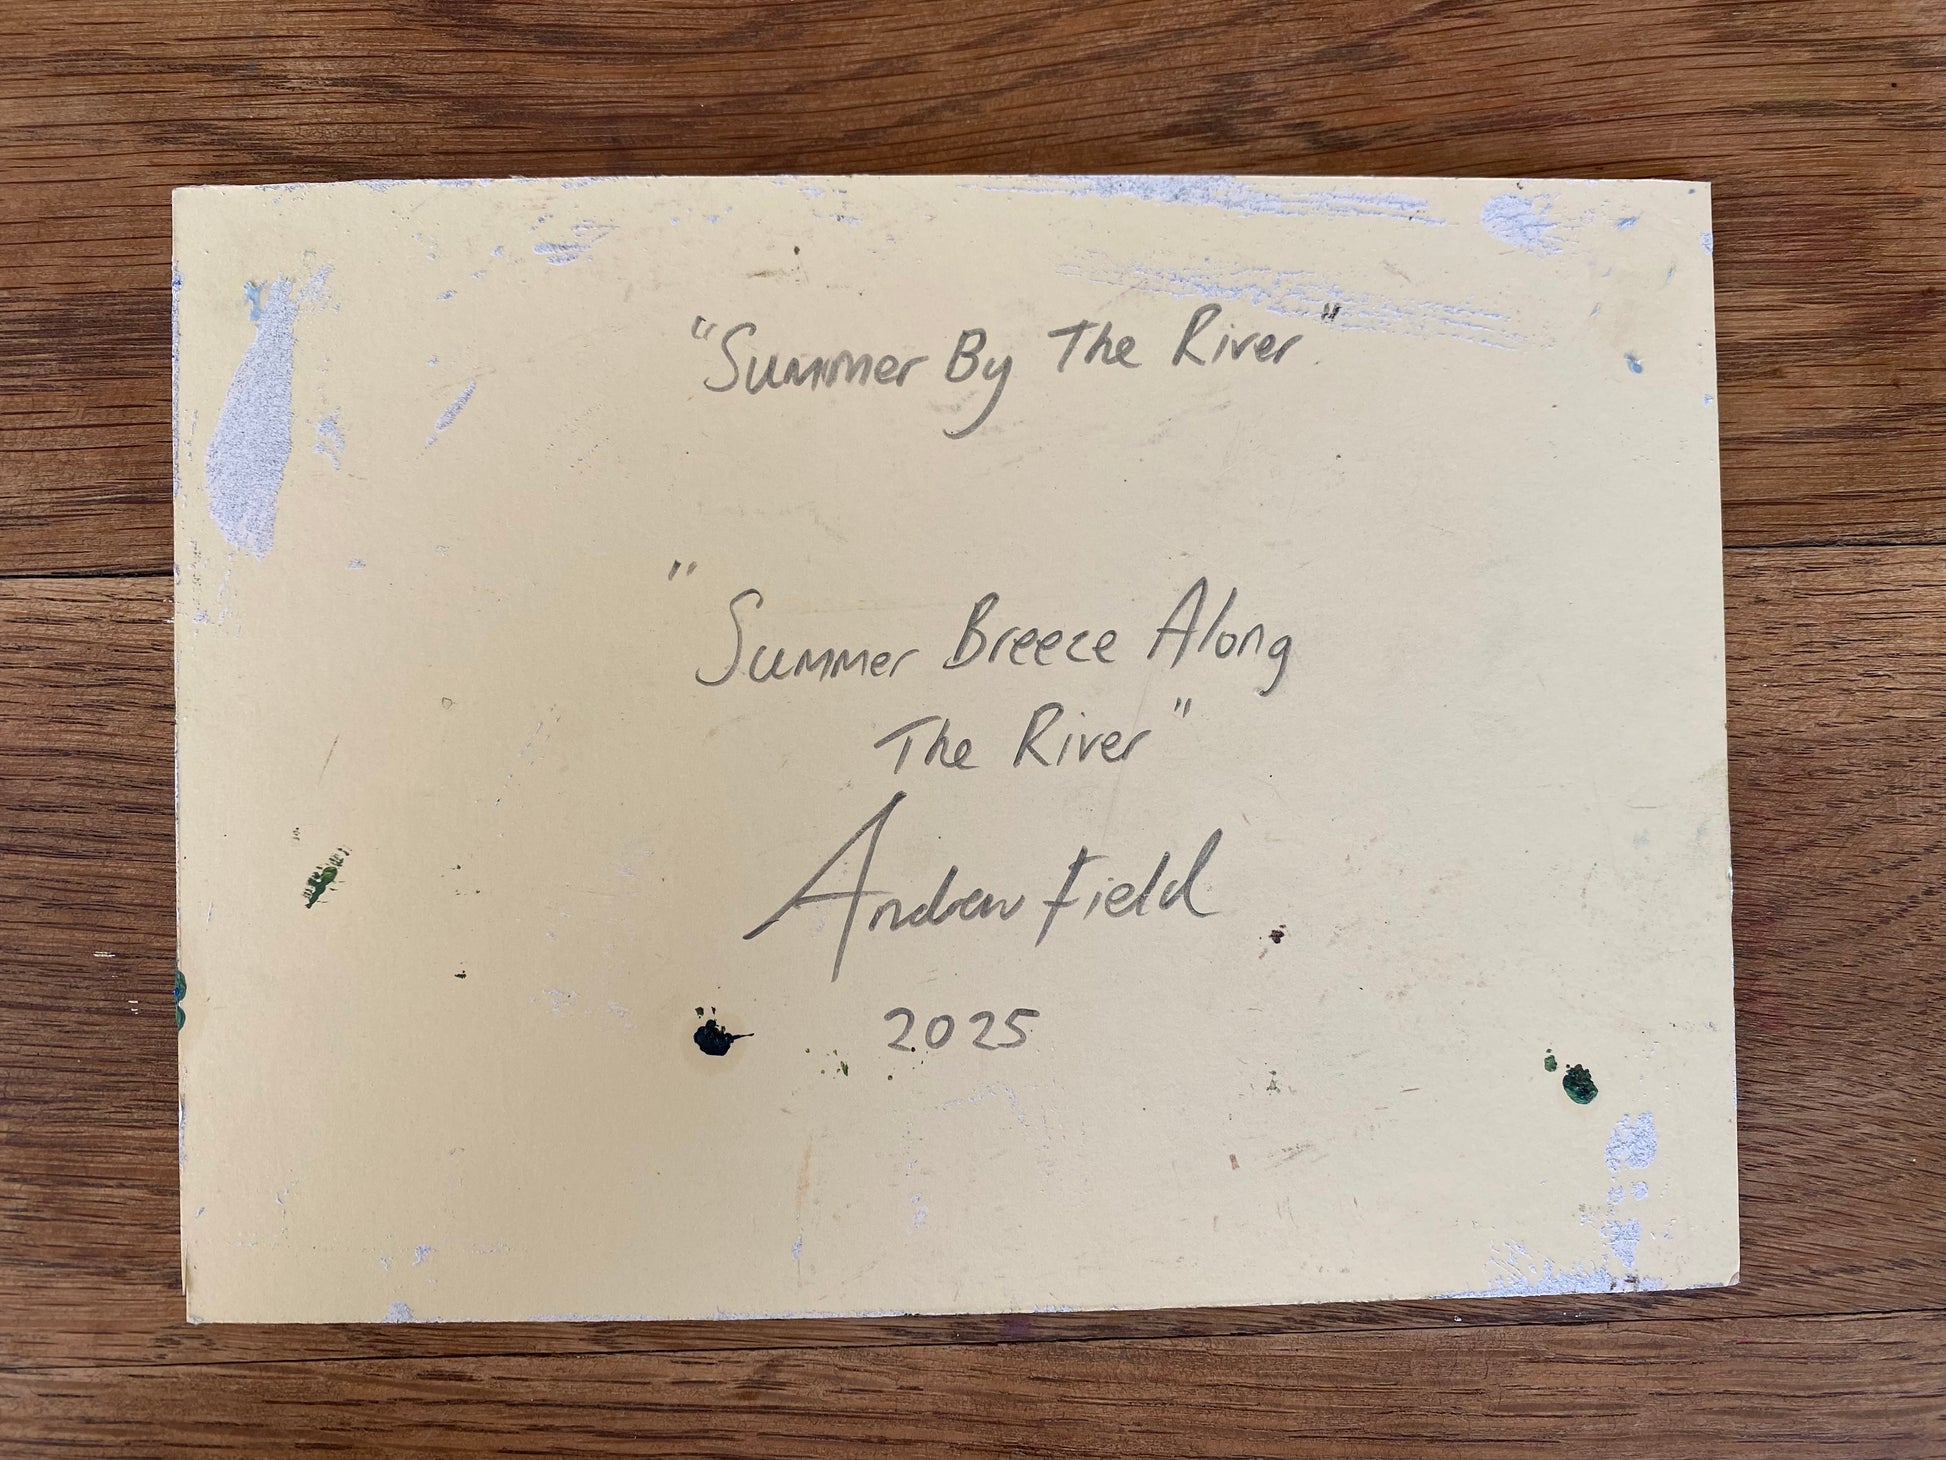 "Summer By The River"
"Summer Breeze Along
The River"
Andrew Field
2025